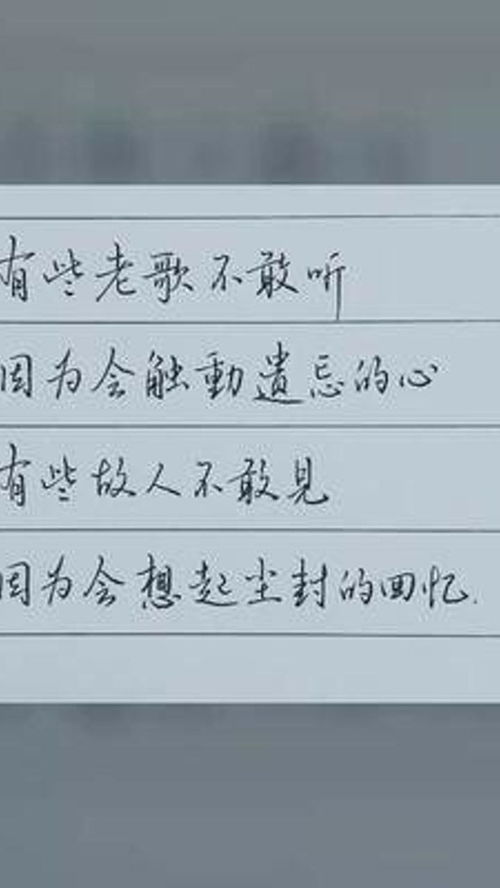 有些老歌不敢听
因为会触動遺忘的心
有些故人不敢見
因为会想起尘封的回忆.